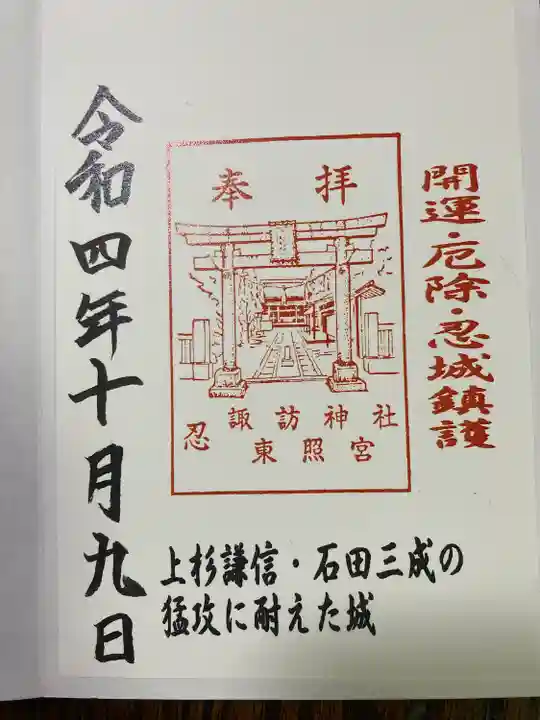 開運・厄除・忍城鎮護
奉拝
諏訪神社
忍東照宮
上杉謙信・石田三成の
猛攻に耐えた城
令和四年十月九日